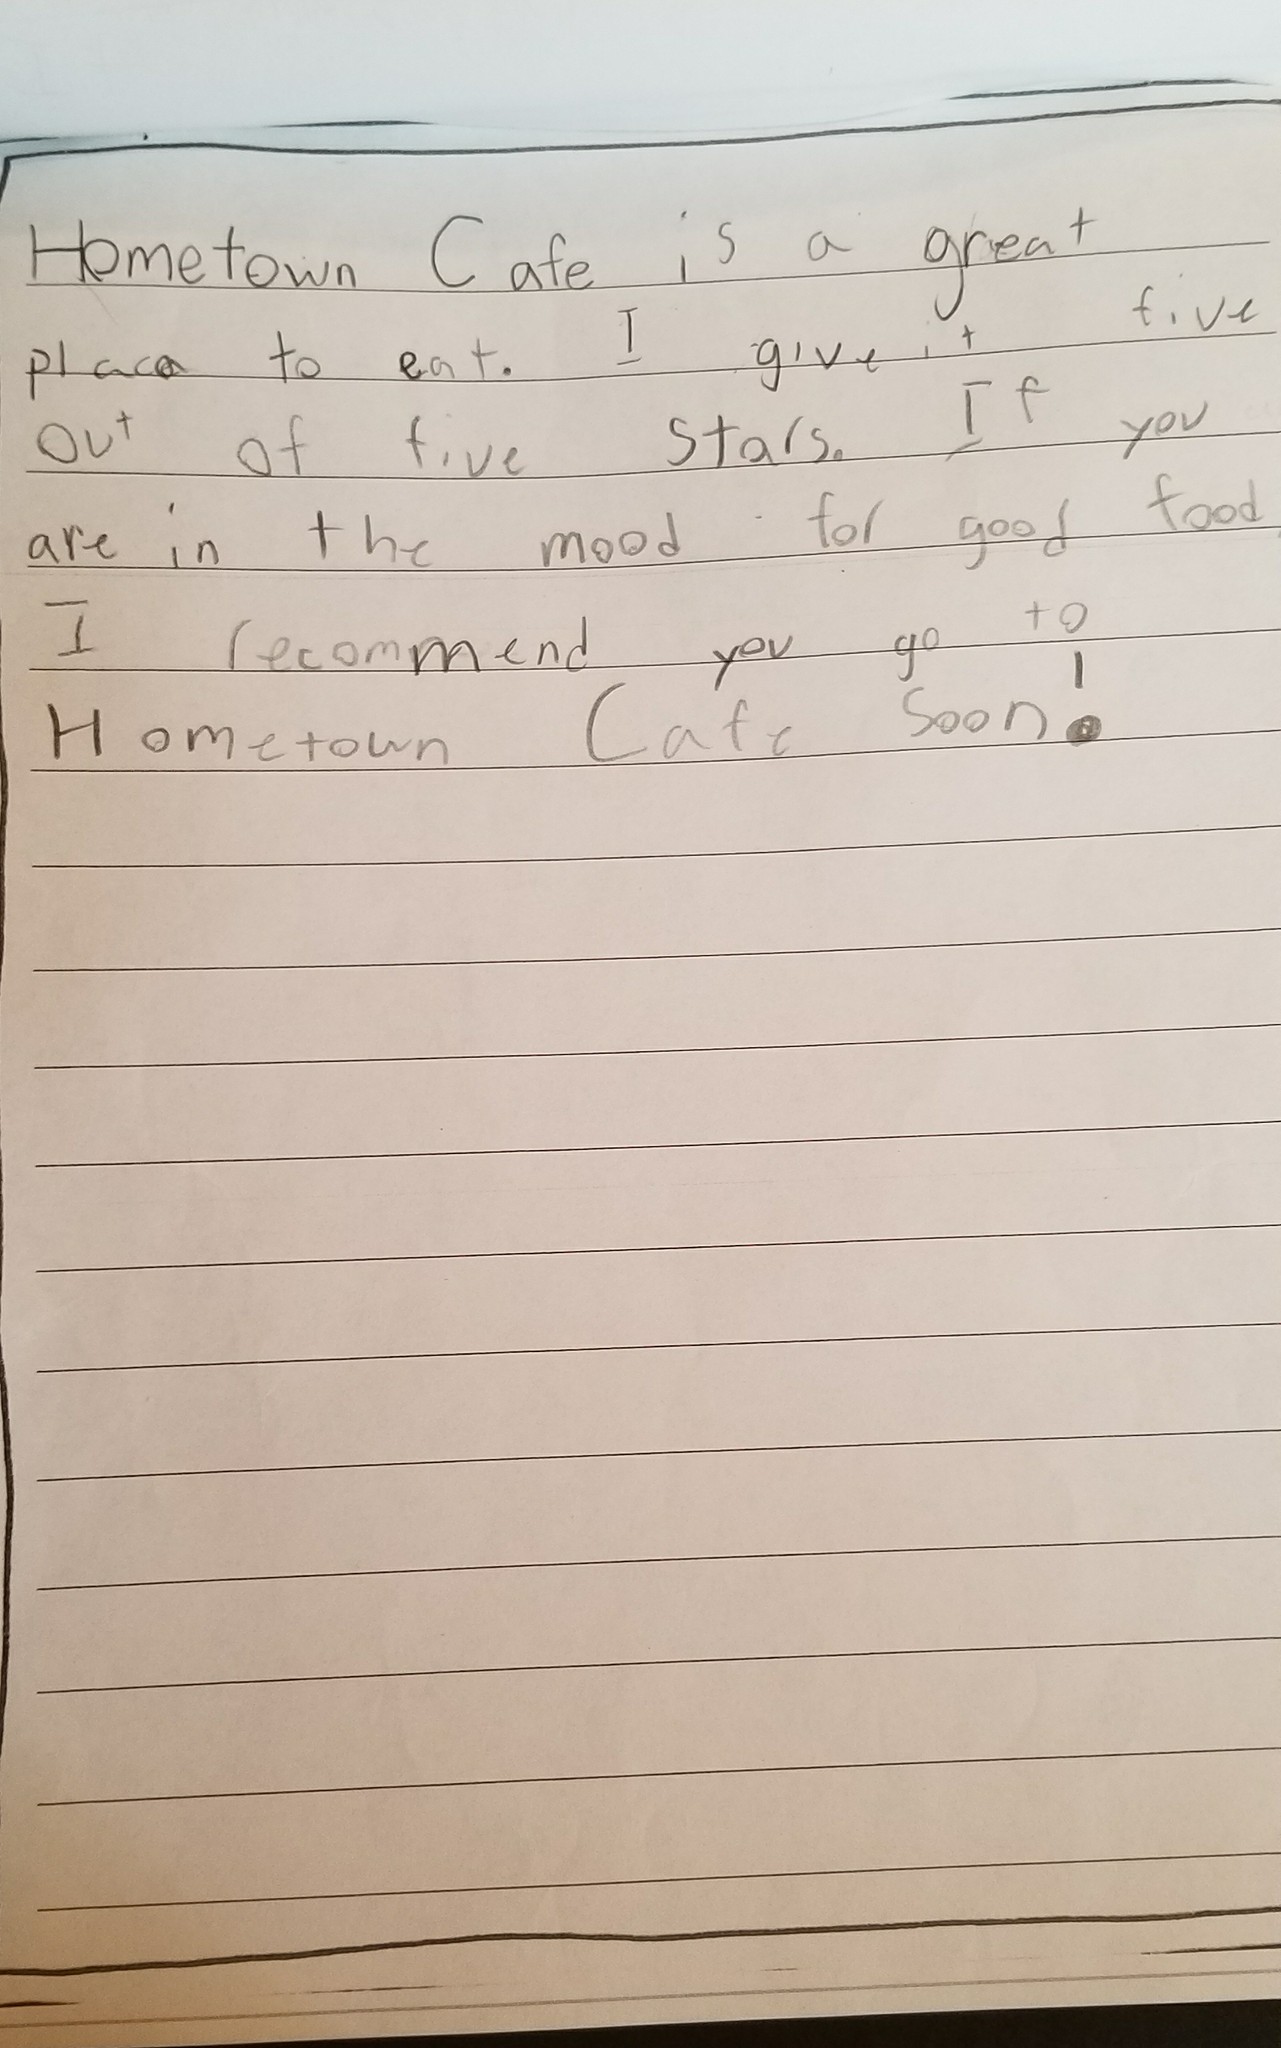 Hometown Cafe is a great
place to eat. I give it five
out of five stars. If you
are in the mood for good food
I recommend you go to
Hometown Cafe soon!